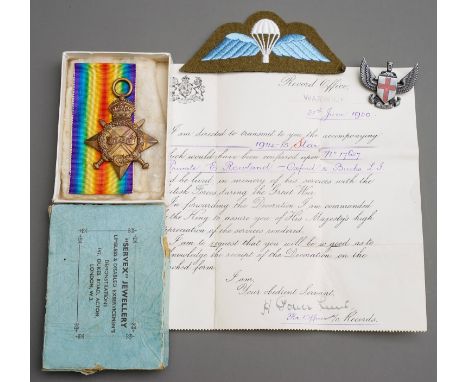 Record Office,
WARWICK
25th June 1920.
I am directed to transmit to you the accompanying
1914-15 Star
which would have been conferred upon No 17607
Private E. Rowland – Oxford & Bucks L.I.
he lived, in memory of his services with the
British Forces during the Great War.
In forwarding the Decoration I am commanded
the King to assure you of His Majesty's high
appreciation of the services rendered.
I am to request that you will be so good as to
knowledge the receipt of the Decoration on the
ached form.
I am,
Your obedient Servant,
for Officer i/c Records.
"SERVEX" JEWELLERY
UPWARD & DISABLED EX-SERVICEMEN'S
ROAD, ACTON
LONDON, W.3.